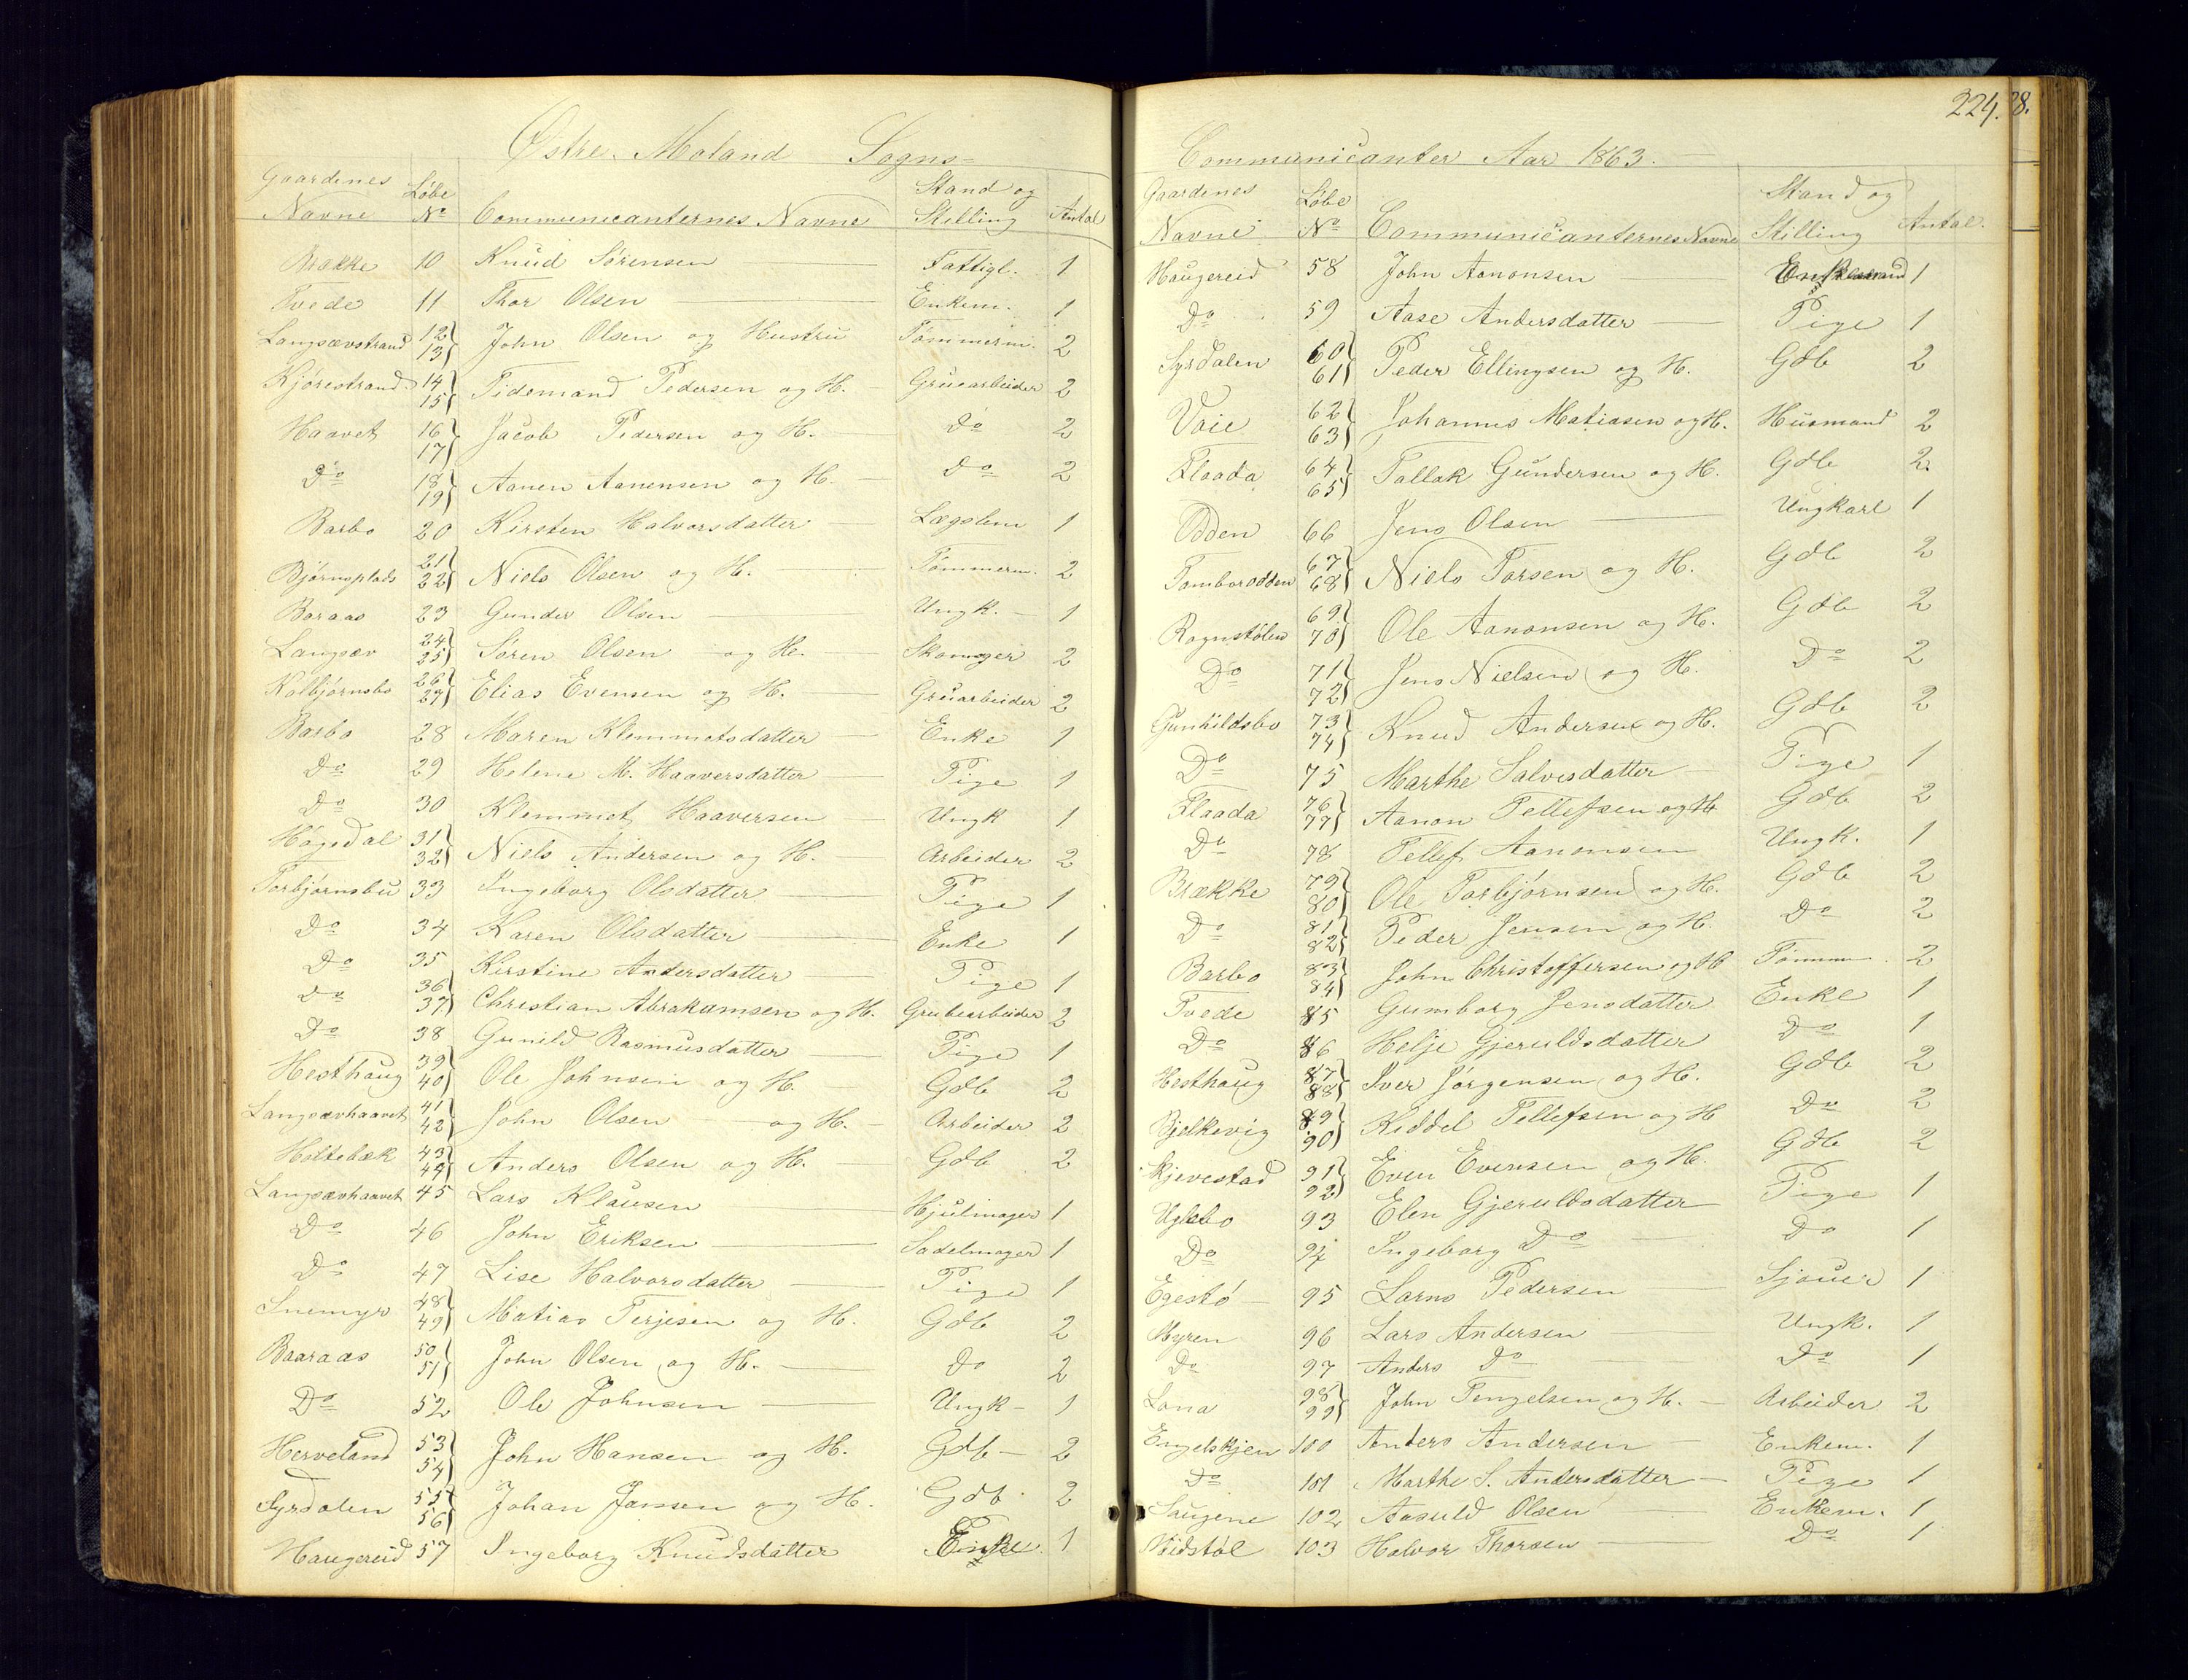 Østre Moland Sogns=
Gaardenes Navne Løbe No Communicanternes Navne Stand og Stilling Antal
Brække 10 Knud Sørensen Fattigl. 1
Tvede 11 Thor Olsen Enkem. 1
Langsævstrand 12 13 John Olsen og Hustru Tømmerm. 2
Kjørestrand 14 15 Tidemand Pedersen og H. Gruearbeider 2
Haavet 16 17 Jacob Pedersen og H. Do 2
Do 18 19 Aanen Aanensen og H. Do 2
Barbo 20 Kirsten Halvorsdatter Lægslem 1
Bjørnsplads 21 22 Niels Olsen og H. Tømmerm. 2
Baraas 23 Gunder Olsen Ungk. 1
Langsæv 24 25 Søren Olsen og H. Skomager 2
Kolbjørnsbo 26 27 Elias Evensen og H. Gruarbeider 2
Barbo 28 Maren Klemmetsdatter Enke 1
Do 29 Helene M. Haaversdatter Pige 1
Do 30 Klemmet Haaversen Ungk 1
Høgedal 31 32 Niels Andersen og H. Arbeider 2
Torbjørnsbu 33 Ingeborg Olsdatter Pige 1
Do 34 Karen Olsdatter Enke 1
Do 35 Kirstine Andersdatter Pige 1
Do 36 37 Christian Abrahamsen og H. Grubearbeider 2
Do 38 Gunild Rasmusdatter Pige 1
Hesthaug 39 40 Ole Johnsen og H. Gdb 2
Langsævhaavet 41 42 John Olsen og H. Arbeider 2
Holtebæk 43 44 Anders Olsen og H. Gdb 2
Langsævhaavet 45 Lars Klausen Hjulmager 1
Do 46 John Eriksen Sadelmager 1
Do 47 Lise Halvorsdatter Pige 1
Snemyr 48 49 Matias Terjesen og H. Gdb 2
Baaraas 50 51 John Olsen og H. Do 2
Do 52 Ole Johnsen Ungk 1
Herveland 53 54 John Hansen og H. Gdb 2
Syrdalen 55 56 Johan Jansen og H. Gdb 2
Haugereid 57 Ingeborg Knudsdatter Enke 1
224. 28.
Communicanter Aar 1863.
Gaardenes Navne Løbe No Communicanternes Navne Stand og Stilling Antal.
Haugereid 58 John Aanonsen Enkemand 1
Do 59 Aase Andersdatter Pige 1
Syrdalen 60 61 Peder Ellingsen og H. Gdb 2
Vaie 62 63 Johannes Matiasen og H. Husmand 2
Flaada 64 65 Tallak Gundersen og H. Gdb 2
Odden 66 Jens Olsen Ungkarl 1
Tomborodden 67 68 Niels Torsen og H. Gdb 2
Rognstølen 69 70 Ole Aanonsen og H. Gdb 2
Do 71 72 Jens Nielsen og H. Do 2
Gunhildsbo 73 74 Knud Andersen og H. Gdb 2
Do 75 Marthe Salvesdatter Pige 1
Flaada 76 77 Aanon Tellefsen og H Gdb 2
Do 78 Tellef Aanonsen Ungk. 1
Brække 79 80 Ole Torbjørnsen og H. Gdb 2
Do 81 82 Peder Jensen og H. Do 2
Barbo 83 84 John Christoffersen og H Tømmerm. 2
Tvede 85 Gumborg Jensdatter Enke 1
Do 86 Helje Gjeruldsdatter Do 1
Hesthaug 87 88 Iver Jørgensen og H. Gdb 2
Bjelkevig 89 90 Keddel Tellefsen og H Do 2
Skjevestad 91 92 Even Evensen og H. Gdb 2
Uglebo 93 Elen Gjeruldsdatter Pige 1
Do 94 Ingeborg Do Do 1
Egestø 95 Larns Pedersen Sjouer 1
Myren 96 Lars Andersen Ungk. 1
Do 97 Anders Do Do 1
Lona 98 99 John Tengelsen og H. Arbeider 2
Engelskjen 100 Anders Andersen Enkem. 1
Do 101 Marthe S. Andersdatter Pige 1
Saugene 102 Aasuld Olsen Enkem. 1
Nøidstøl 103 Halvor Thorsen Do 1